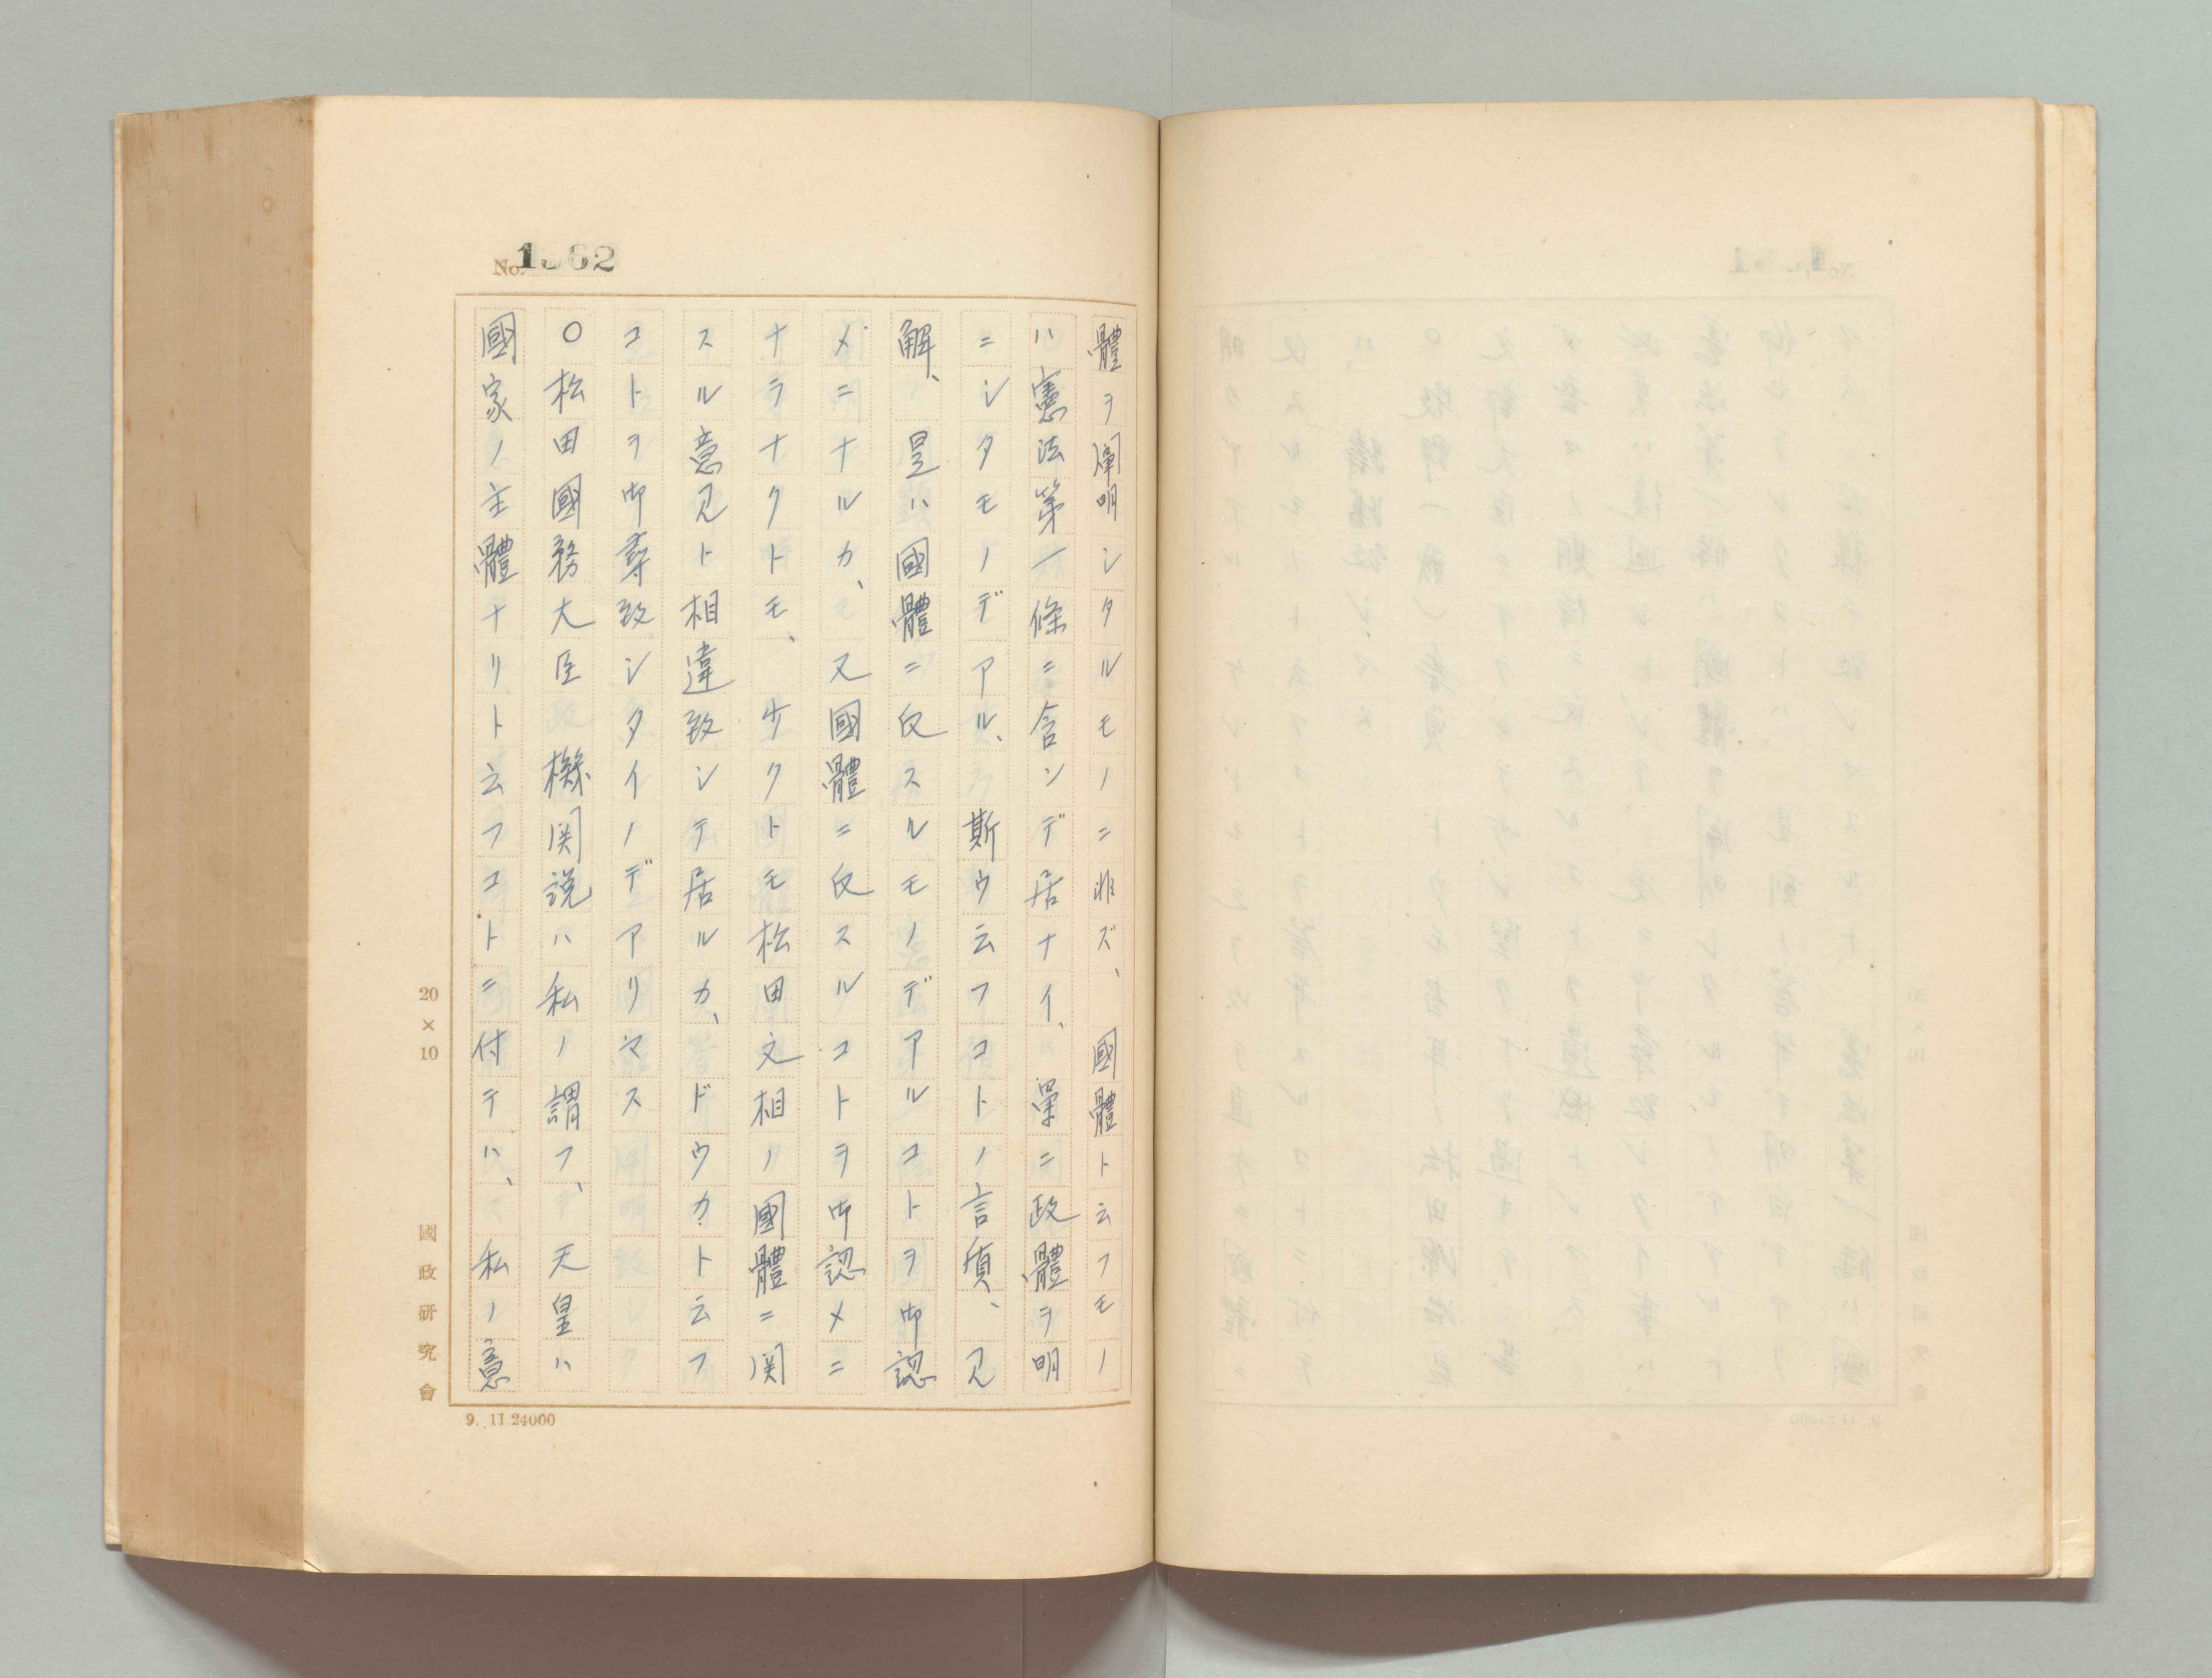 No.1362
體ヲ闡明シタルモノニ非ズ、國體ト云フモノ
ハ憲法第一條ニ含ンデ居ナイ、單ニ政體ヲ明
ニシタモノデアル、斯ウ云フコトノ言質、見
解、是ハ國體ニ反スルモノデアルコトヲ御認
メニナルカ、又國體ニ反スルコトヲ御認メニ
ナラナクトモ、少クトモ松田文相ノ國體ニ関
スル意見ト相違致シテ居ルカ、ドウカト云フ
コトヲ御尋致シタイノデアリマス
〇松田國務大臣 機関説ハ私ノ謂フ、天皇ハ
國家ノ主體ナリト云フコトニ付テハ、私ノ意
20×10
國政研究會
9. 11.24000